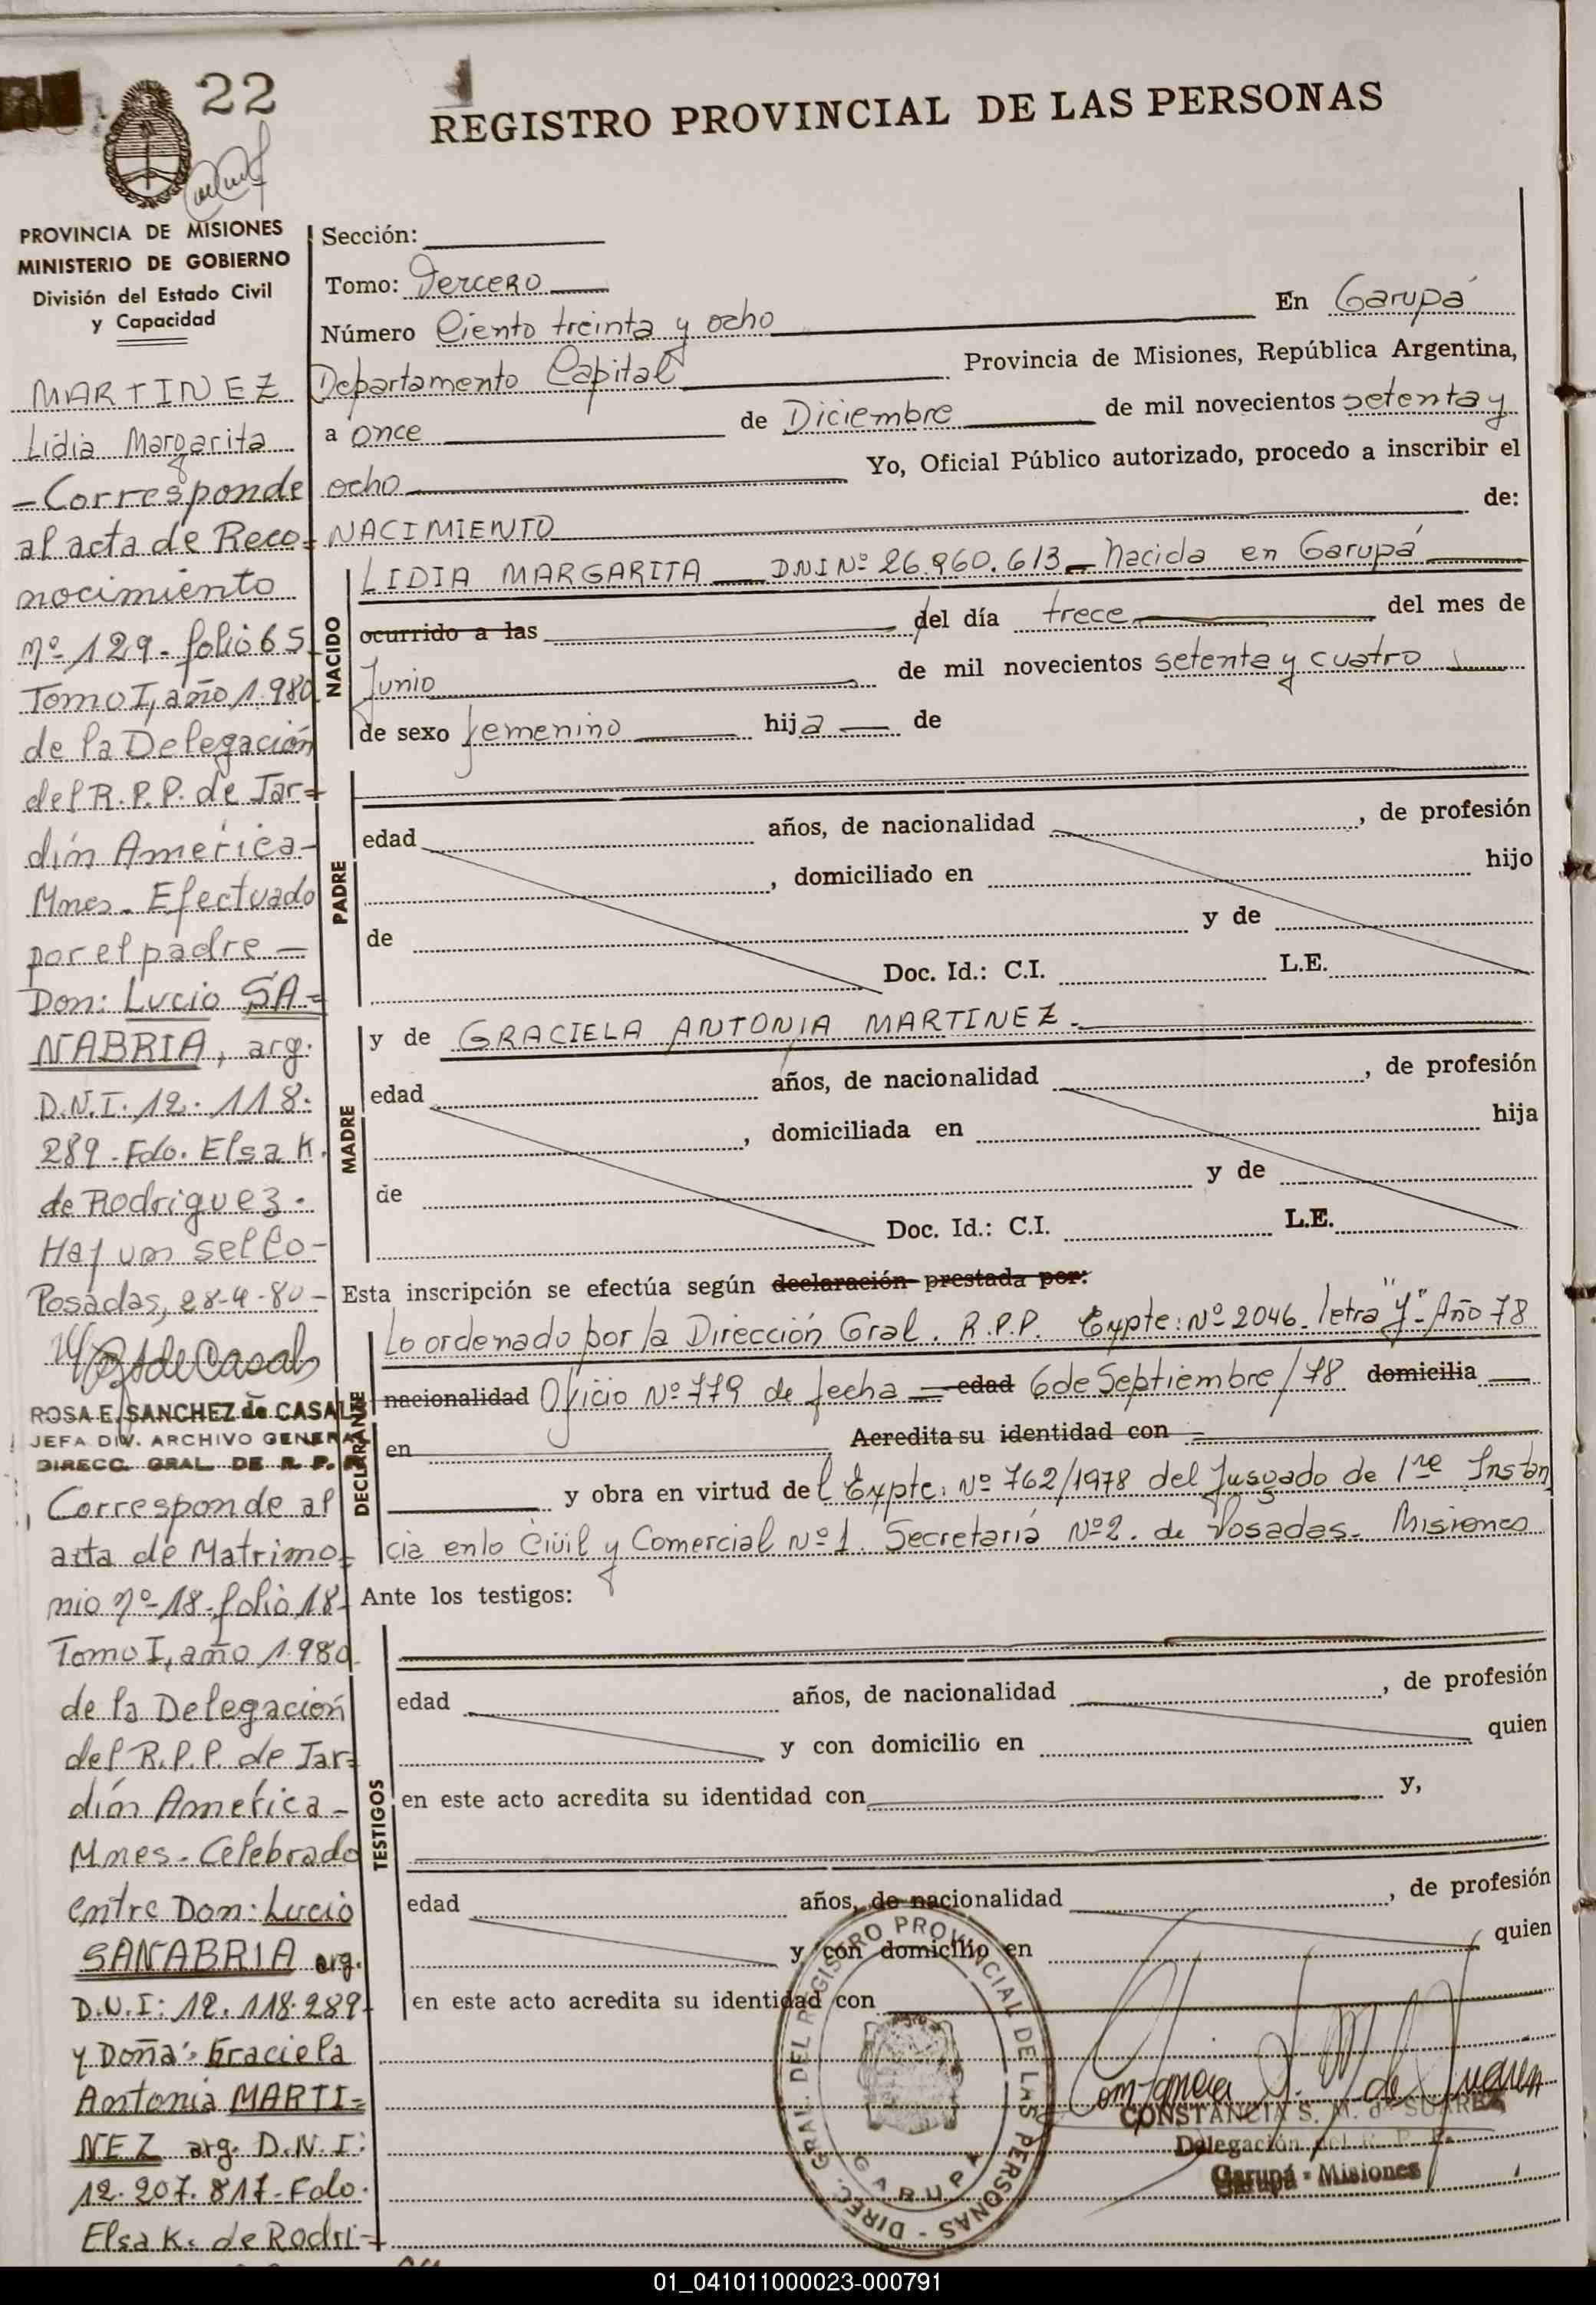 22
REGISTRO PROVINCIAL DE LAS PERSONAS
PROVINCIA DE MISIONES
MINISTERIO DE GOBIERNO
División del Estado Civil
y Capacidad
MARTINEZ
Lidia Margarita
- Corresponde
al acta de Reco-
nocimiento
nº 129 - folio 65
Tomo I, año 1.980
de la Delegación
del R.P.P. de Jar-
dín América-
Mnes - Efectuado
por el padre -
Don: Lucio SA=
NABRIA, arg.
D.N.I. 12.118.
289 - Fdo. Elsa K.
de Rodriguez.
Hay un sello-
Posadas, 28-4-80 -
ROSA E. SANCHEZ de CASAL
JEFA DIV. ARCHIVO GENERAL
DIRECC. GRAL. DE R. P. P.
Corresponde al
acta de Matrimo=
nio nº 18 - folio 18 -
Tomo I, año 1.980
de la Delegación
del R.P.P. de Jar=
dín América -
Mnes - Celebrado
entre Don: Lucio
SANABRIA arg.
D.N.I: 12.118.289-
y Doña: Graciela
Antonia MARTI=
NEZ arg. D.N.I:
12.207.817 - Fdo.
Elsa K. de Rodri-
Sección:
Tomo: Tercero
Número Ciento treinta y ocho En Garupá
Departamento Capital Provincia de Misiones, República Argentina,
a once de Diciembre de mil novecientos setenta y
ocho Yo, Oficial Público autorizado, procedo a inscribir el
NACIMIENTO de:
NACIDO
LIDIA MARGARITA DNI Nº 26.960.613 - Nacida en Garupá
ocurrido a las del día trece del mes de
Junio de mil novecientos setenta y cuatro
de sexo femenino hija de
PADRE
edad años, de nacionalidad , de profesión
, domiciliado en hijo
de y de
Doc. Id.: C.I. L.E.
MADRE
y de GRACIELA ANTONIA MARTINEZ -
edad años, de nacionalidad , de profesión
, domiciliada en hija
de y de
Doc. Id.: C.I. L.E.
Esta inscripción se efectúa según declaración prestada por:
DECLARANTE
Lo ordenado por la Dirección Gral. R.P.P. Expte: Nº 2046 - letra "Y" - Año 78
nacionalidad Oficio Nº 779 de fecha = edad 6 de Septiembre/78 domicilia
en Acredita su identidad con
y obra en virtud del Expte: Nº 762/1978 del Jusgado de 1ra Instan
cia en lo Civil y Comercial Nº 1. Secretaría Nº 2. de Posadas - Misiones
Ante los testigos:
TESTIGOS
edad años, de nacionalidad , de profesión
y con domicilio en quien
en este acto acredita su identidad con y,
edad años, de nacionalidad , de profesión
y con domicilio en quien
en este acto acredita su identidad con
DIREC. GRAL. DEL REGISTRO PROVINCIAL DE LAS PERSONAS -
GARUPA
CONSTANCIA S. M. de SUAREZ
Delegación del R. P. P.
Garupá - Misiones
01_041011000023-000791